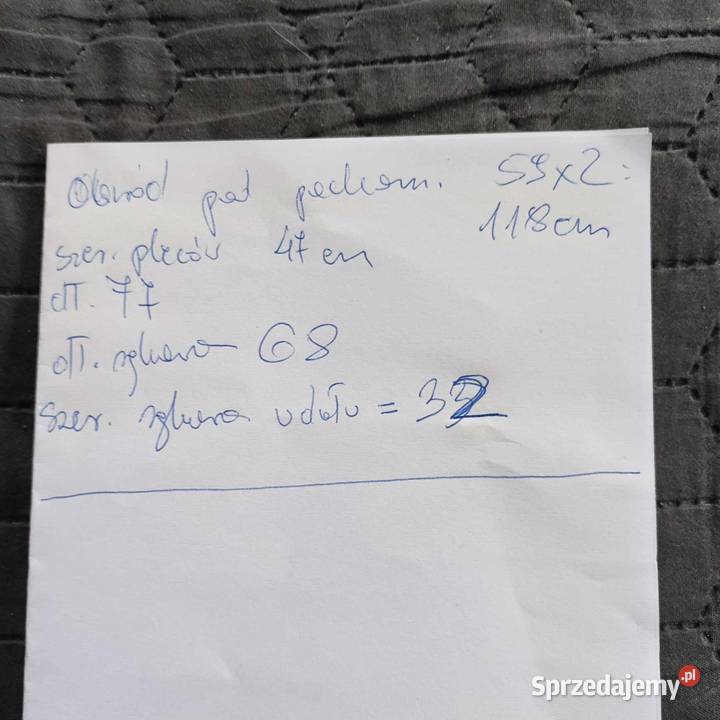 Obwód pod pachom. 59x2:
118cm
szer. pleców 47 cm
dł. 77
dł. rękawa 68
szer. rękawa u dołu = 32
Sprzedajemy.pl